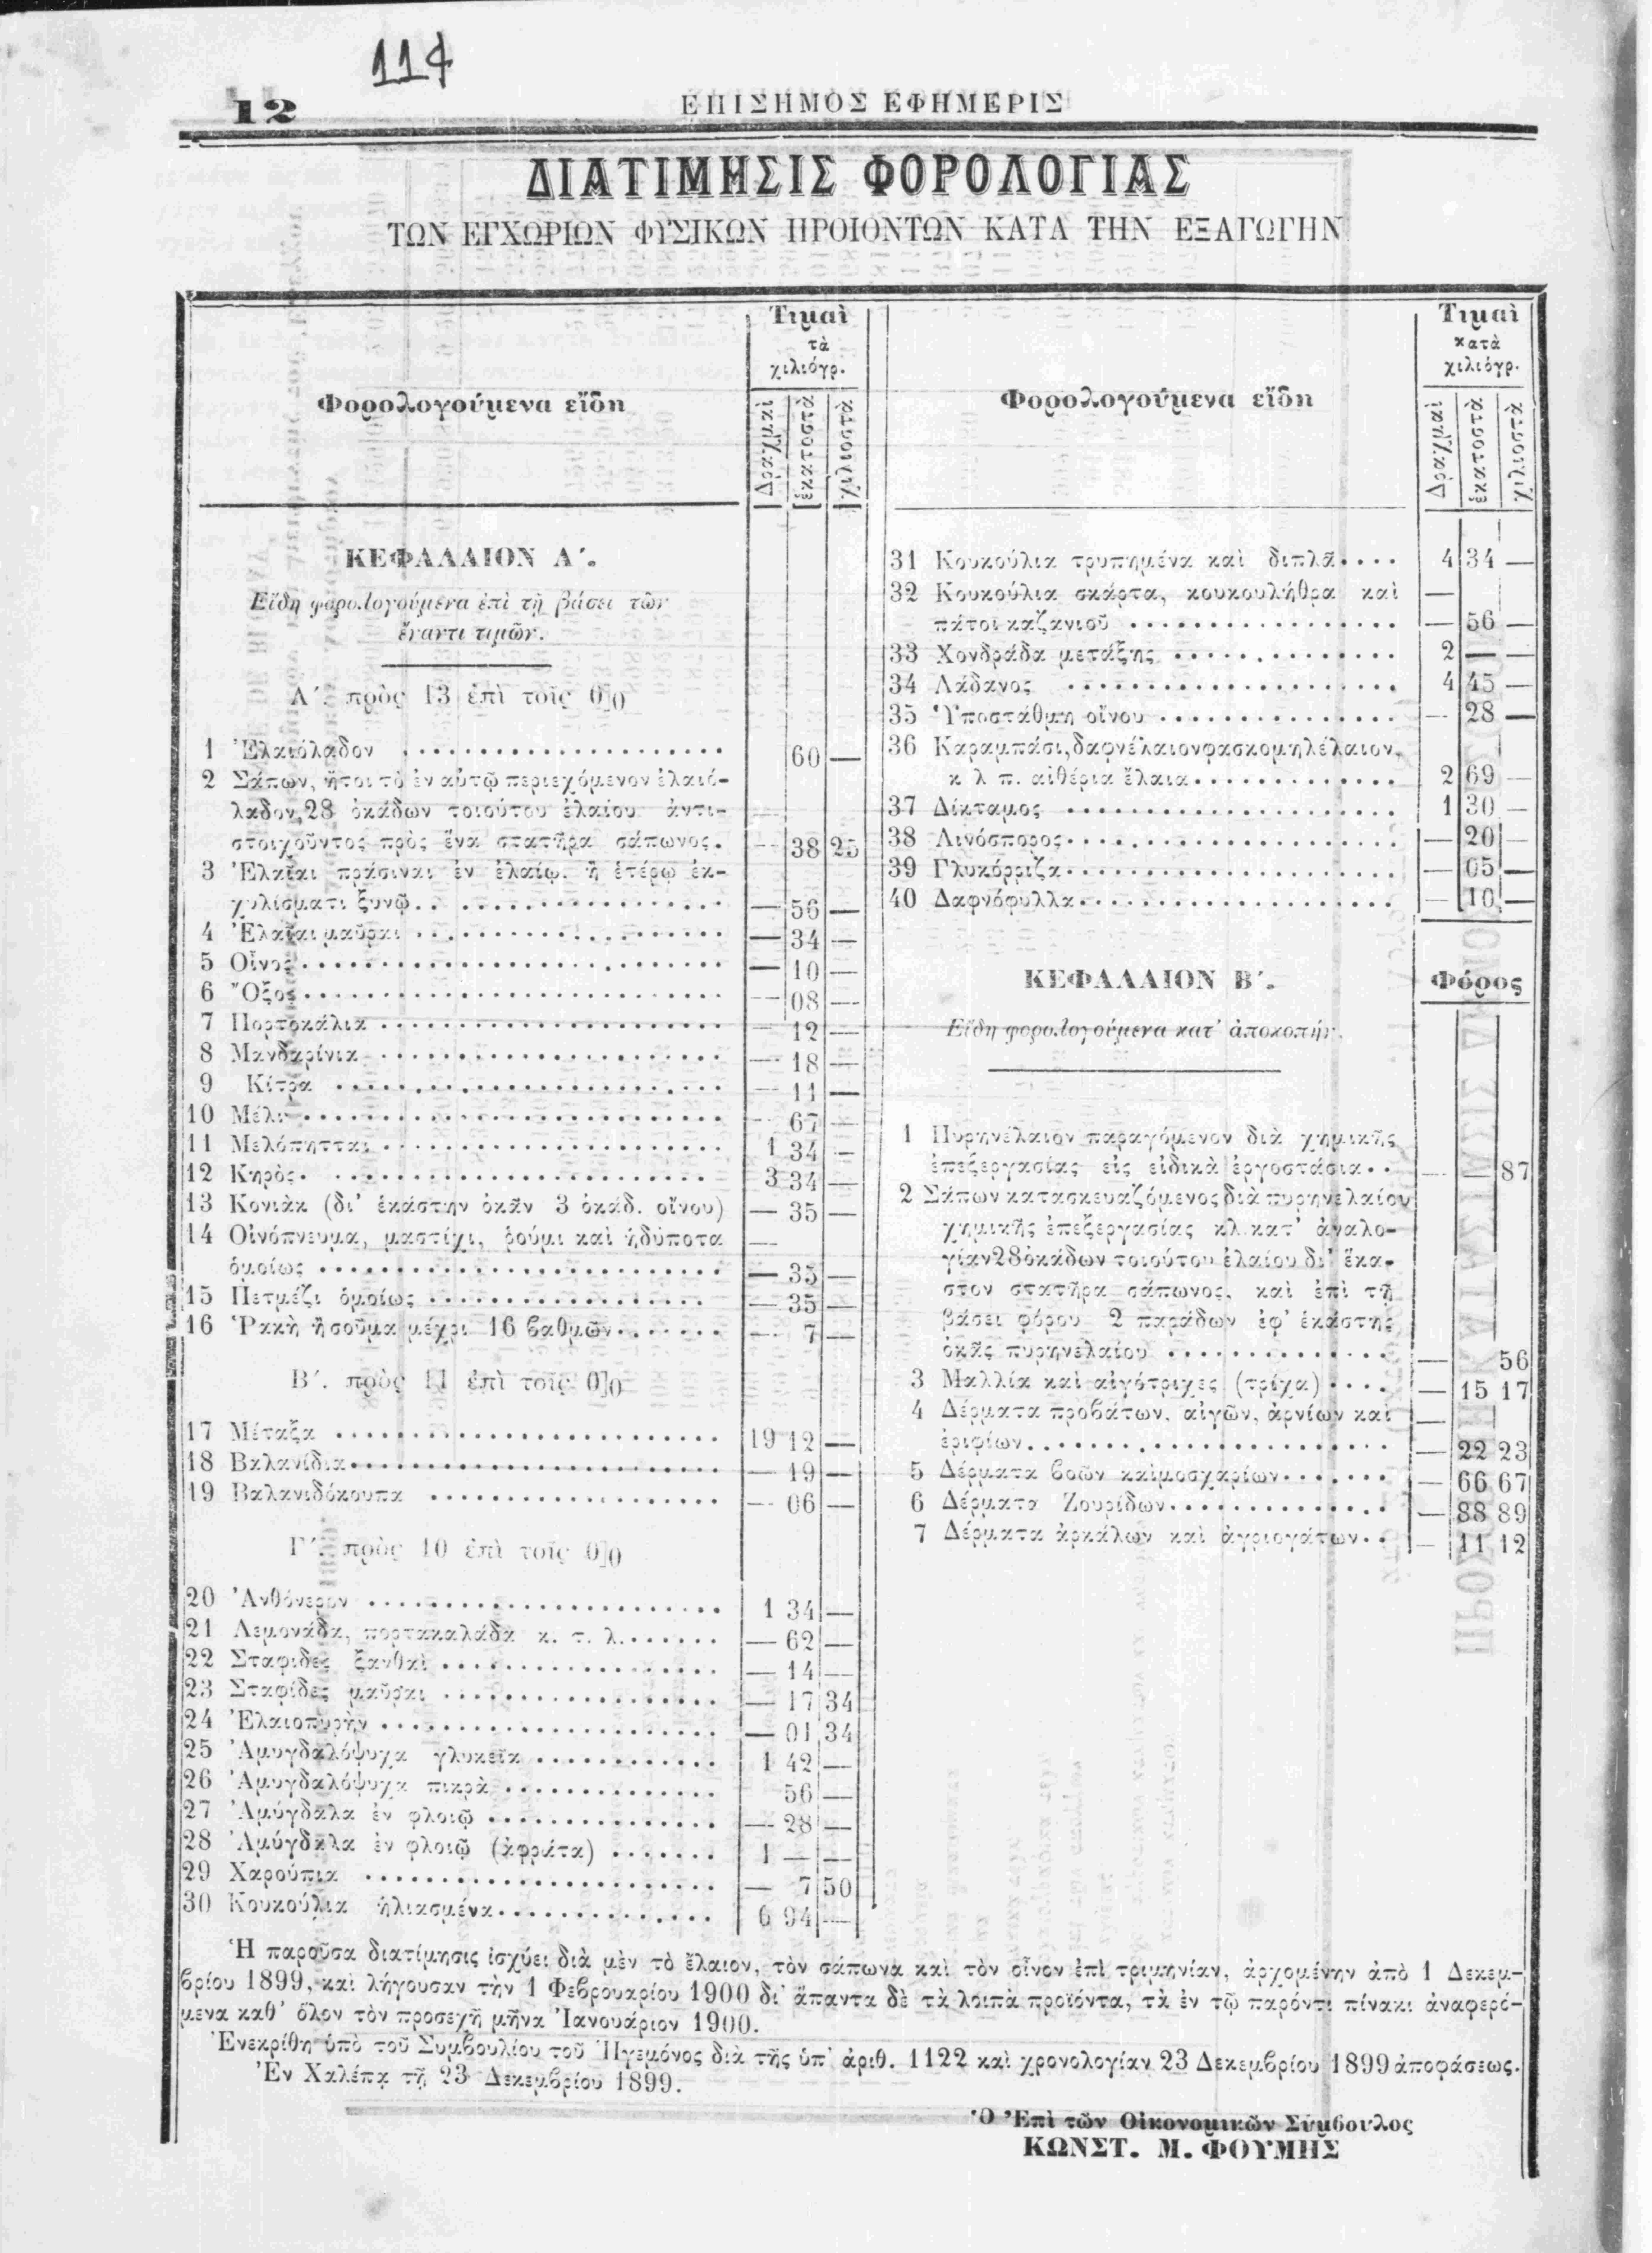 114
12
ΕΠΙΣΗΜΟΣ ΕΦΗΜΕΡΙΣ
ΔΙΑΤΙΜΗΣΙΣ ΦΟΡΟΛΟΓΙΑΣ
ΤΩΝ ΕΓΧΩΡΙΩΝ ΦΥΣΙΚΩΝ ΠΡΟΙΟΝΤΩΝ ΚΑΤΑ ΤΗΝ ΕΞΑΓΩΓΗΝ
Φορολογούμενα εἴδη
Τιμαὶ
τὰ
χιλιόγρ.
Δραχμαὶ
ἑκατοστὰ
χιλιοστὰ
ΚΕΦΑΛΑΙΟΝ Α΄.
Εἴδη φορολογούμενα ἐπὶ τῇ βάσει τῶν
ἔναντι τιμῶν.
Α΄. πρὸς 13 ἐπὶ τοῖς 0]0
1 Ἐλαιόλαδον .......... 60 —
2 Σάπων, ἤτοι τὸ ἐν αὐτῷ περιεχόμενον ἐλαιό-
λαδον, 28 ὀκάδων τοιούτου ἐλαίου ἀντι-
στοιχοῦντος πρὸς ἕνα στατῆρα σάπωνος. — 38 25
3 Ἐλαῖαι πράσιναι ἐν ἐλαίῳ. ἢ ἑτέρῳ ἐκ-
χυλίσματι ξυνῷ.......... — 56 —
4 Ἐλαῖαι μαῦραι .......... — 34 —
5 Οἶνος.......... — 10 —
6 Ὄξος.......... — 08 —
7 Πορτοκάλια .......... — 12 —
8 Μανδαρίνια .......... — 18 —
9 Κίτρα .......... — 11 —
10 Μέλι.......... — 67 —
11 Μελόπητται.......... 1 34 —
12 Κηρός. .......... 3 34 —
13 Κονιὰκ (δι' ἑκάστην ὀκᾶν 3 ὀκάδ. οἴνου) — 35 —
14 Οἰνόπνευμα, μαστίχι, ῥούμι καὶ ἡδύποτα —
ὁμοίως .......... — 35 —
15 Πετμέζι ὁμοίως .......... — 35 —
16 Ῥακὴ ἢ σοῦμα μέχρι 16 βαθμῶν....... — 7 —
Β΄. πρὸς 11 ἐπὶ τοῖς 0]0
17 Μέταξα .......... 19 12 —
18 Βαλανίδια.......... — 19 —
19 Βαλανιδόκουπα .......... — 06 —
Γ΄. πρὸς 10 ἐπὶ τοῖς 0]0
20 Ἀνθόνερον .......... 1 34 —
21 Λεμονάδα, πορτακαλάδα κ. τ. λ....... — 62 —
22 Σταφίδες ξανθαὶ .......... — 14 —
23 Σταφίδες μαῦραι .......... — 17 34
24 Ἐλαιοπυρὴν .......... — 01 34
25 Ἀμυγδαλόψυχα γλυκεῖα .......... 1 42 —
26 Ἀμυγδαλόψυχα πικρὰ .......... 56 —
27 Ἀμύγδαλα ἐν φλοιῷ .......... — 28 —
28 Ἀμύγδαλα ἐν φλοιῷ (ἀφράτα) ....... 1 — —
29 Χαρούπια .......... — 7 50
30 Κουκούλια ἡλιασμένα.......... 6 94 —
Φορολογούμενα εἴδη
Τιμαὶ
κατὰ
χιλιόγρ.
Δραχμαὶ
ἑκατοστὰ
χιλιοστὰ
31 Κουκούλια τρυπημένα καὶ διπλᾶ.... 4 34 —
32 Κουκούλια σκάρτα, κουκουλήθρα καὶ —
πάτοι καζανιοῦ .......... — 56 —
33 Χονδράδα μετάξης .......... 2 — —
34 Λάδανος .......... 4 45 —
35 Ὑποστάθμη οἴνου .......... — 28 —
36 Καραμπάσι, δαφνέλαιον φασκομηλέλαιον,
κ λ π. αἰθέρια ἔλαια.......... 2 69 —
37 Δίκταμος .......... 1 30 —
38 Λινόσπορος.......... — 20 —
39 Γλυκόρριζα.......... — 05 —
40 Δαφνόφυλλα.......... — 10 —
ΚΕΦΑΛΑΙΟΝ Β΄.
Φόρος
Εἴδη φορολογούμενα κατ' ἀποκοπήν.
1 Πυρηνέλαιον παραγόμενον διὰ χημικῆς
ἐπεξεργασίας εἰς εἰδικὰ ἐργοστάσια.. — 87
2 Σάπων κατασκευαζόμενος διὰ πυρηνελαίου
χημικῆς ἐπεξεργασίας κλ. κατ' ἀναλο-
γίαν 28 ὀκάδων τοιούτου ἐλαίου δι' ἕκα-
στον στατῆρα σάπωνος, καὶ ἐπὶ τῇ
βάσει φόρου 2 παράδων ἐφ' ἑκάστης
ὀκᾶς πυρηνελαίου .......... — 56
3 Μαλλία καὶ αἰγότριχες (τρίχα) .... — 15 17
4 Δέρματα προβάτων, αἰγῶν, ἀρνίων καὶ —
ἐριφίων.......... — 22 23
5 Δέρματα βοῶν καὶ μοσχαρίων....... — 66 67
6 Δέρματα Ζουρίδων.......... — 88 89
7 Δέρματα ἀρκάλων καὶ ἀγριογάτων.. — 11 12
Ἡ παροῦσα διατίμησις ἰσχύει διὰ μὲν τὸ ἔλαιον, τὸν σάπωνα καὶ τὸν οἶνον ἐπὶ τριμηνίαν, ἀρχομένην ἀπὸ 1 Δεκεμ-
βρίου 1899, καὶ λήγουσαν τὴν 1 Φεβρουαρίου 1900 δι' ἅπαντα δὲ τὰ λοιπὰ προϊόντα, τὰ ἐν τῷ παρόντι πίνακι ἀναφερό-
μενα καθ' ὅλον τὸν προσεχῆ μῆνα Ἰανουάριον 1900.
Ἐνεκρίθη ὑπὸ τοῦ Συμβουλίου τοῦ Ἡγεμόνος διὰ τῆς ὑπ' ἀριθ. 1122 καὶ χρονολογίαν 23 Δεκεμβρίου 1899 ἀποφάσεως.
Ἐν Χαλέπᾳ τῇ 23 Δεκεμβρίου 1899.
Ὁ Ἐπὶ τῶν Οἰκονομικῶν Σύμβουλος
ΚΩΝΣΤ. Μ. ΦΟΥΜΗΣ